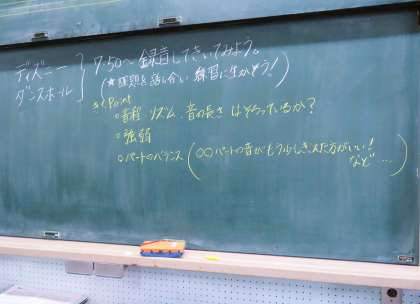 ディズニー
ダンスホール
7:50〜 録音してきいてみよう。
(★課題を話し合い 練習に生かそう!)
きくPoint
○音程 リズム、音の長さ はそろっているか?
○強弱
○パートのバランス (○○パートの音がもう少しきこえた方がいい!
など…)